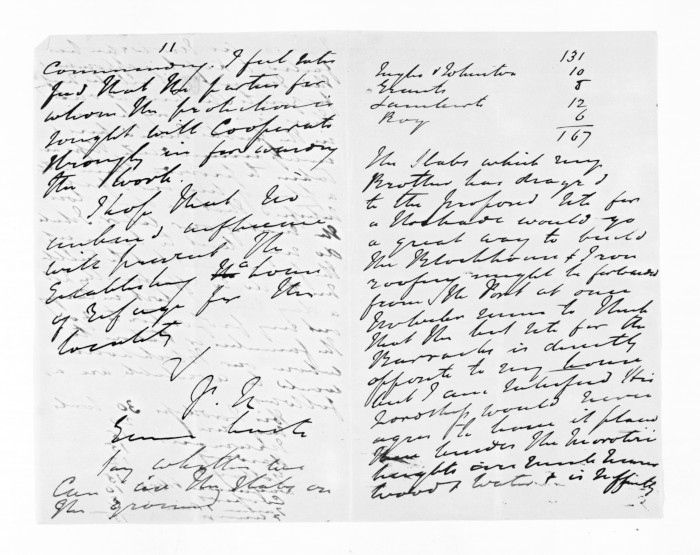 11
Commanding. I feel satis
fied that the parties for
whom the protection is
sought will Cooperate
strongly in forwarding
the Work.
I hope that no
influence
will prevent the
Establishing a house
of Refuge for this
locality
J. N
can see the Slabs on
the ground
131
Inglis & Johnston 10
Grants 8
Lamberts 12
Roy 6
167
The Slabs which my
Brother has dragd
to the proposed Site for
a Stockade would go
a great way to build
the Blockhouse & Iron
roofing might be forwarded
from the Port at once
seems to think
that the best site for the
Barracks is directly
opposite to my house
but I am satisfied His
Lordship would never
agree to have it placed
besides the
heights are much nearer
wood & water & is